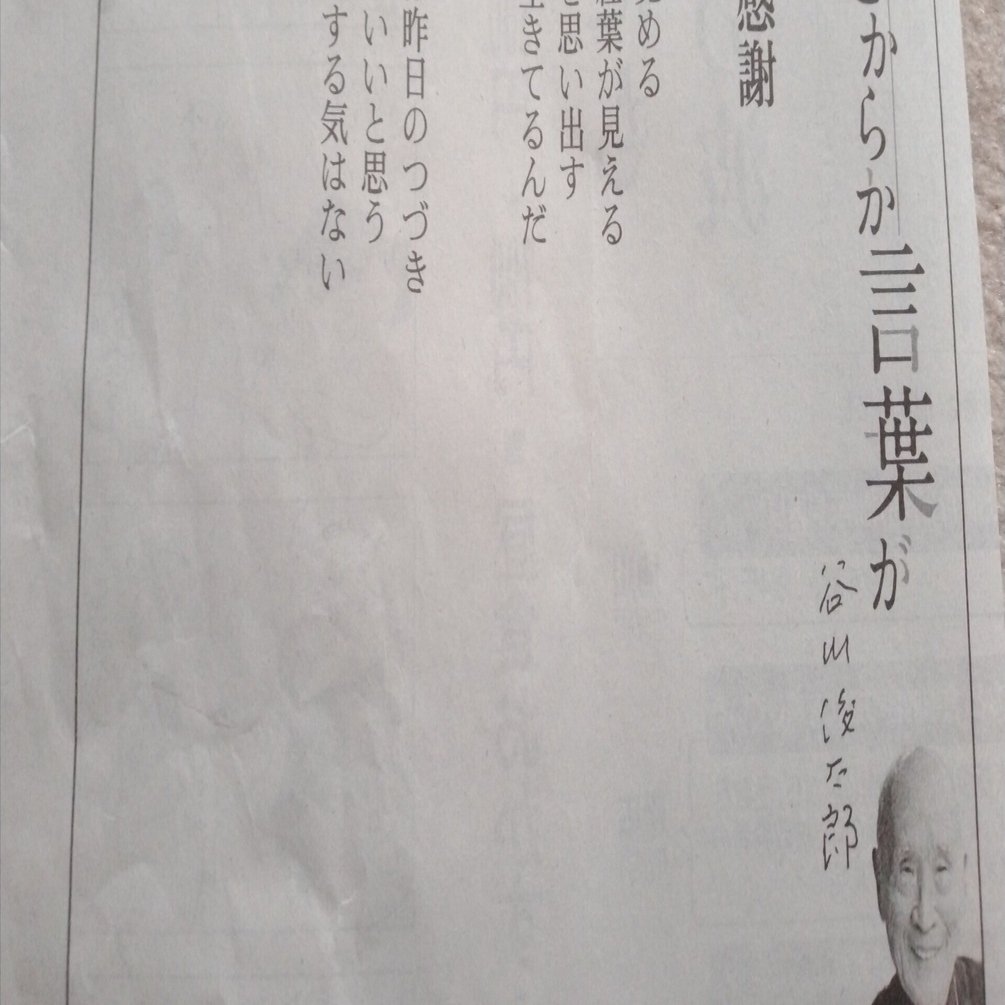 からか言葉が
谷川俊太郎
感謝
める
葉が見える
思い出す
きてるんだ
昨日のつづき
いいと思う
する気はない